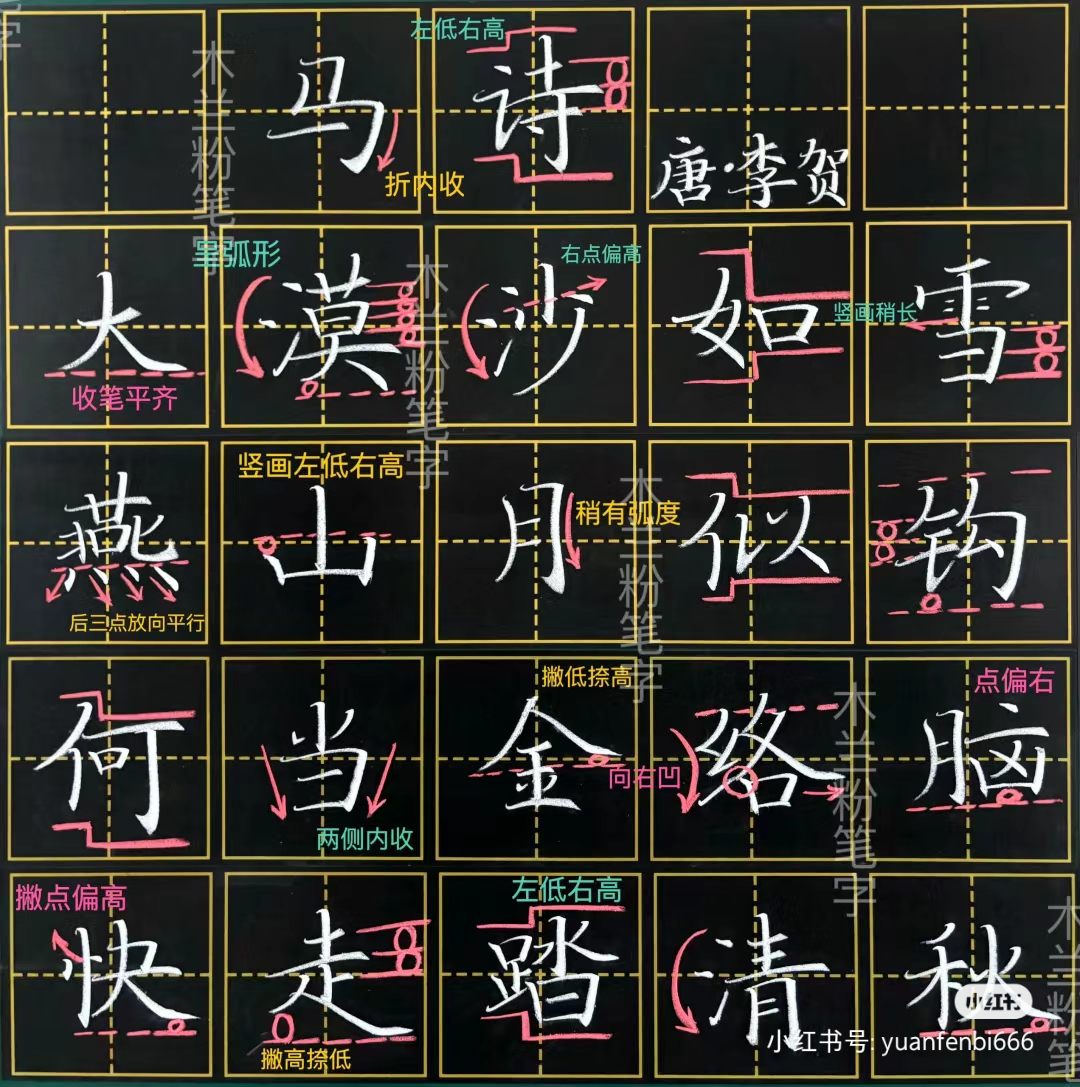 左低右高
马诗
折内收
唐·李贺
呈弧形
右点偏高
竖画稍长
大漠沙如雪
收笔平齐
竖画左低右高
稍有弧度
燕山月似钩
后三点放向平行
撇低捺高
点偏右
何当金络脑
向右凹
两侧内收
撇点偏高
左低右高
快走踏清秋
撇高捺低
小红书
小红书号: yuanfenbi666
木兰粉笔字
木兰粉笔字
木兰粉笔字
木兰粉笔字
木兰粉笔